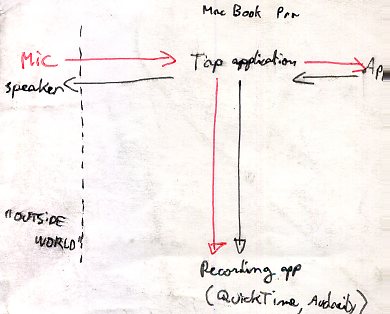 Mac Book Pro
Mic
Tap application
Ap
speaker
"OUTSIDE
WORLD"
Recording app
(QuickTime, Audacity)